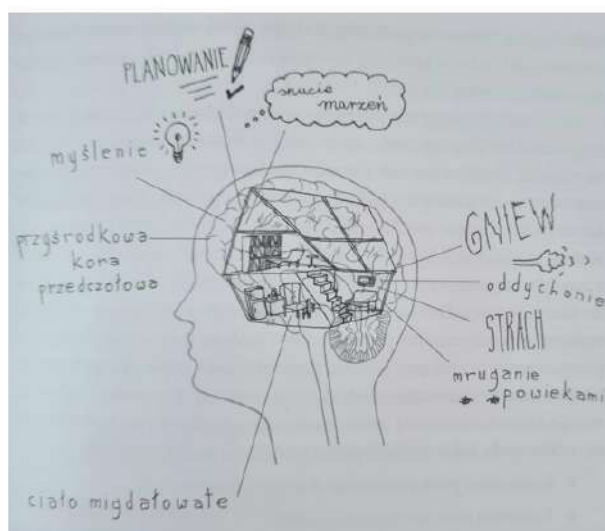 PLANOWANIE
snucie
marzeń
myślenie
przyśrodkowa
kora
przedczołowa
GNIEW
oddychanie
STRACH
mruganie
powiekami
ciało migdałowate